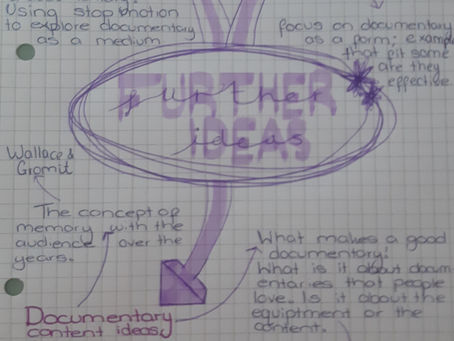 Using stop motion
to explore documentary
as a medium
focus on documentary
as a form; example
that fit some
are they
effective
FURTHER
IDEAS
further
ideas
Wallace &
Gromit
The concept of
memory with the
audience over the
years.
What makes a good
documentary?
What is it about docum
entaries that people
love. Is it about the
equiptment or the
content.
Documentary
content ideas,